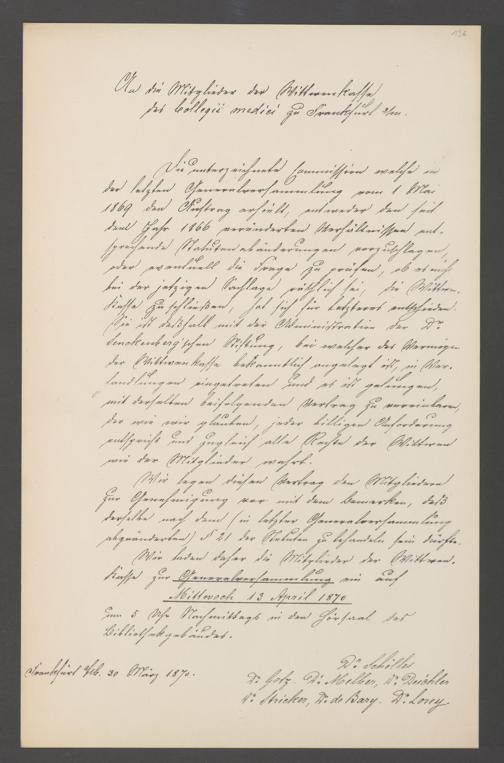 136
An die Mitglieder der Wittwenkasse
des Collegii medici zu Frankfurt a/m.
Die unterzeichnete Commission welche in
der letzten Generalversammlung vom 1 Mai
1869 den Auftrag erhielt, entweder den seit
dem Jahr 1866 veränderten Verhältnissen ent-
sprechende Statutenabänderungen vorzuschlagen,
oder eventuell die Frage zu prüfen, ob es nicht
bei der jetzigen Sachlage räthlich sei, die Wittwen-
kasse zu schließen, hat sich für letzteres entschieden.
Sie ist deßhalb mit der Administration der Dr
Senckenberg'schen Stiftung, bei welcher das Vermögen
der Wittwenkasse bekanntlich angelegt ist, in Ver-
handlungen eingetreten und es ist gelungen,
mit derselben beifolgenden Vertrag zu vereinbaren,
der wie wir glauben, jeder billigen Anforderung
entspricht und zugleich alle Rechte der Wittwen
wie der Mitglieder wahrt.
Wir legen diesen Vertrag den Mitgliedern
zur Genehmigung vor mit dem Bemerken, daß
derselbe nach dem (in letzter Generalversammlung
abgeänderten) § 21 der Statuten zu behandeln sein dürfte.
Wir laden daher die Mitglieder der Wittwen-
kasse zur Generalversammlung ein auf
Mittwoch 13 April 1870
um 5 Uhr Nachmittags in den Hörsaal des
Bibliothekgebäudes.
Frankfurt a/m. 30 März 1870.
Dr. Schölles
Dr. Getz. Dr. Melber, Dr. Deichler
Dr. Stricker, Dr. de Bary. Dr. Lorey